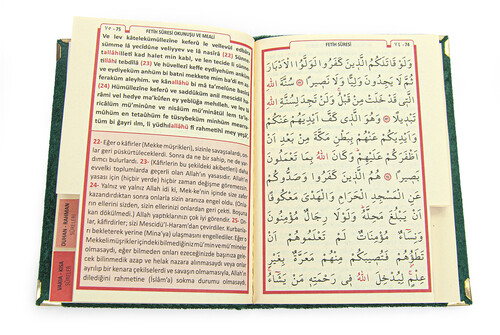 ٧٥ - 75 FETİH SÛRESİ OKUNUŞU VE MEÂLİ
Ve lev kâtelekümüllezîne keferû le vellevül edbâra
sümme lâ yecidûne veliyyev ve lâ nasîra (22) Sünne
tillâhilletî kad halet min kabl, ve len tecide li sünne
tillâhi tebdîla (23) Ve hüvellezî keffe eydiyehüm anküm
ve eydiyeküm anhüm bi batni mekkete mim ba'di en az
feraküm aleyhim, ve kânallâhü bi mâ ta'melûne basîra
(24) Hümüllezîne keferû ve saddûküm anil mescidil ha
râmi vel hedye ma'kûfen ey yeblüğa mehılleh, ve lev lâ
ricâlüm mü'minûne ve nisâüm mü'minâtül lem ta'le
mûhüm en tetaûhüm fe tüsybeküm minhüm mearra
tüm bi ğayri ılm, li yüdhılallâhü fî rahmetihî mey yeşâ',
22- Eğer o kâfirler (Mekke müşrikleri), sizinle savaşsalardı, on
lar geri püskürtüleceklerdi. Sonra da ne bir sahip, ne de yar
dımcı bulurlardı. 23- (Kâfirlerin bu şekildeki akıbetleri) daha
evvelki toplumlarda geçerli olan Allah'ın yasasıdır. Allah'ın
yasası için (hiçbir yerde) hiçbir zaman değişme göremezsin.
24- Yalnız ve yalnız Allah idi ki, Mek-ke'nin içinde size zafer
kazandırdıktan sonra onlarla sizin aranıza engel oldu. (Onla
rın ellerini sizden, sizin ellerinizi onlardan geri çekti. Boşuna
kan dökülmedi.) Allah yaptıklarınızı çok iyi görendir. 25- On
lar, kâfirdirler; sizi Mescidü'l-Haram'dan çevirdiler. Kurban
ları bekleterek yerine (Mina'ya) ulaşmasını engellediler. Eğer o
Mekkeli müşrikler içinde kendi bilmediğiniz mü'min ve mü'mineler
olmasaydı, eğer bilmeden onları ezeceğinizde başınıza gele
cek bilinmedik azap ve helak nazara alınmasaydı veya onlar
ayrılıp bir kenara çekilselerdi ve savaşın olmamasıyla, Allah'ın
dilediğini rahmetine (İslâm'a) sokma durumu olmasaydı,
DUHAN - RAHMAN
VAKIA - KISA
FETİH SÛRESİ ٧٤ - 74
وَلَوْ قَاتَلَكُمُ الَّذِينَ كَفَرُوا لَوَلَّوُا الْاَدْبَارَ
ثُمَّ لَا يَجِدُونَ وَلِيًّا وَلَا نَصِيرًا ۝ سُنَّةَ اللّٰهِ
الَّتِى قَدْ خَلَتْ مِنْ قَبْلُ وَلَنْ تَجِدَ لِسُنَّةِ اللّٰهِ
تَبْدِيلًا ۝ وَهُوَ الَّذِى كَفَّ اَيْدِيَهُمْ عَنْكُمْ
وَاَيْدِيَكُمْ عَنْهُمْ بِبَطْنِ مَكَّةَ مِنْ بَعْدِ اَنْ
اَظْفَرَكُمْ عَلَيْهِمْ وَكَانَ اللّٰهُ بِمَا تَعْمَلُونَ
بَصِيرًا ۝ هُمُ الَّذِينَ كَفَرُوا وَصَدُّوكُمْ
عَنِ الْمَسْجِدِ الْحَرَامِ وَالْهَدْىَ مَعْكُوفًا
اَنْ يَبْلُغَ مَحِلَّهُ وَلَوْلَا رِجَالٌ مُؤْمِنُونَ
وَنِسَاءٌ مُؤْمِنَاتٌ لَمْ تَعْلَمُوهُمْ اَنْ
تَطَؤُهُمْ فَتُصِيبَكُمْ مِنْهُمْ مَعَرَّةٌ بِغَيْرِ
عِلْمٍ لِيُدْخِلَ اللّٰهُ فِى رَحْمَتِهِ مَنْ يَشَاءُ